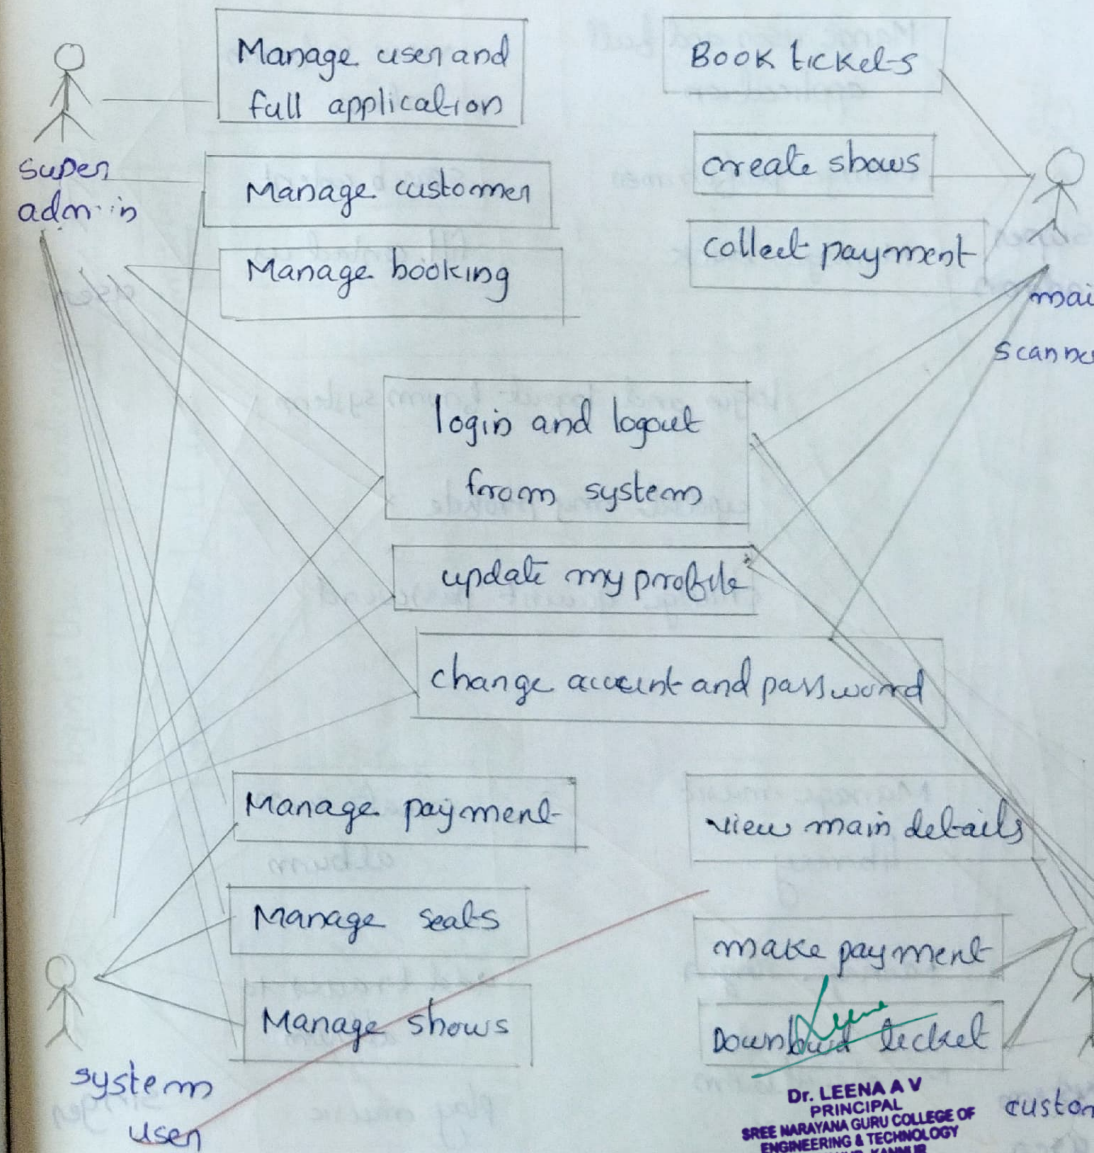 Manage user and
full application
Book tickets
super
admin
Manage customer
create shows
Manage booking
collect payment
mai
scanne
login and logout
from system
update my profile
change account and password
Manage payment
view main details
Manage seats
make payment
Manage shows
Download ticket
system
user
custom
Dr. LEENA A V
PRINCIPAL
SREE NARAYANA GURU COLLEGE OF
ENGINEERING & TECHNOLOGY